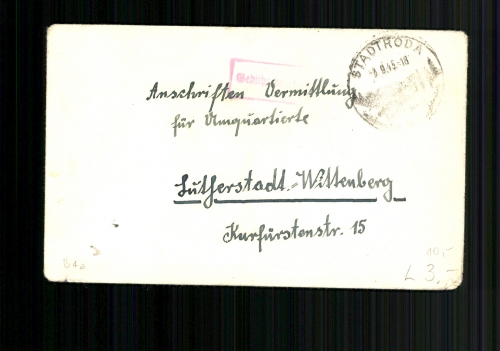 STADTRODA
9.45-18
Anschriften Vermittlung
für Umquartierte
Lutherstadt-Wittenberg
Kurfürstenstr. 15
10,-
L 3,-